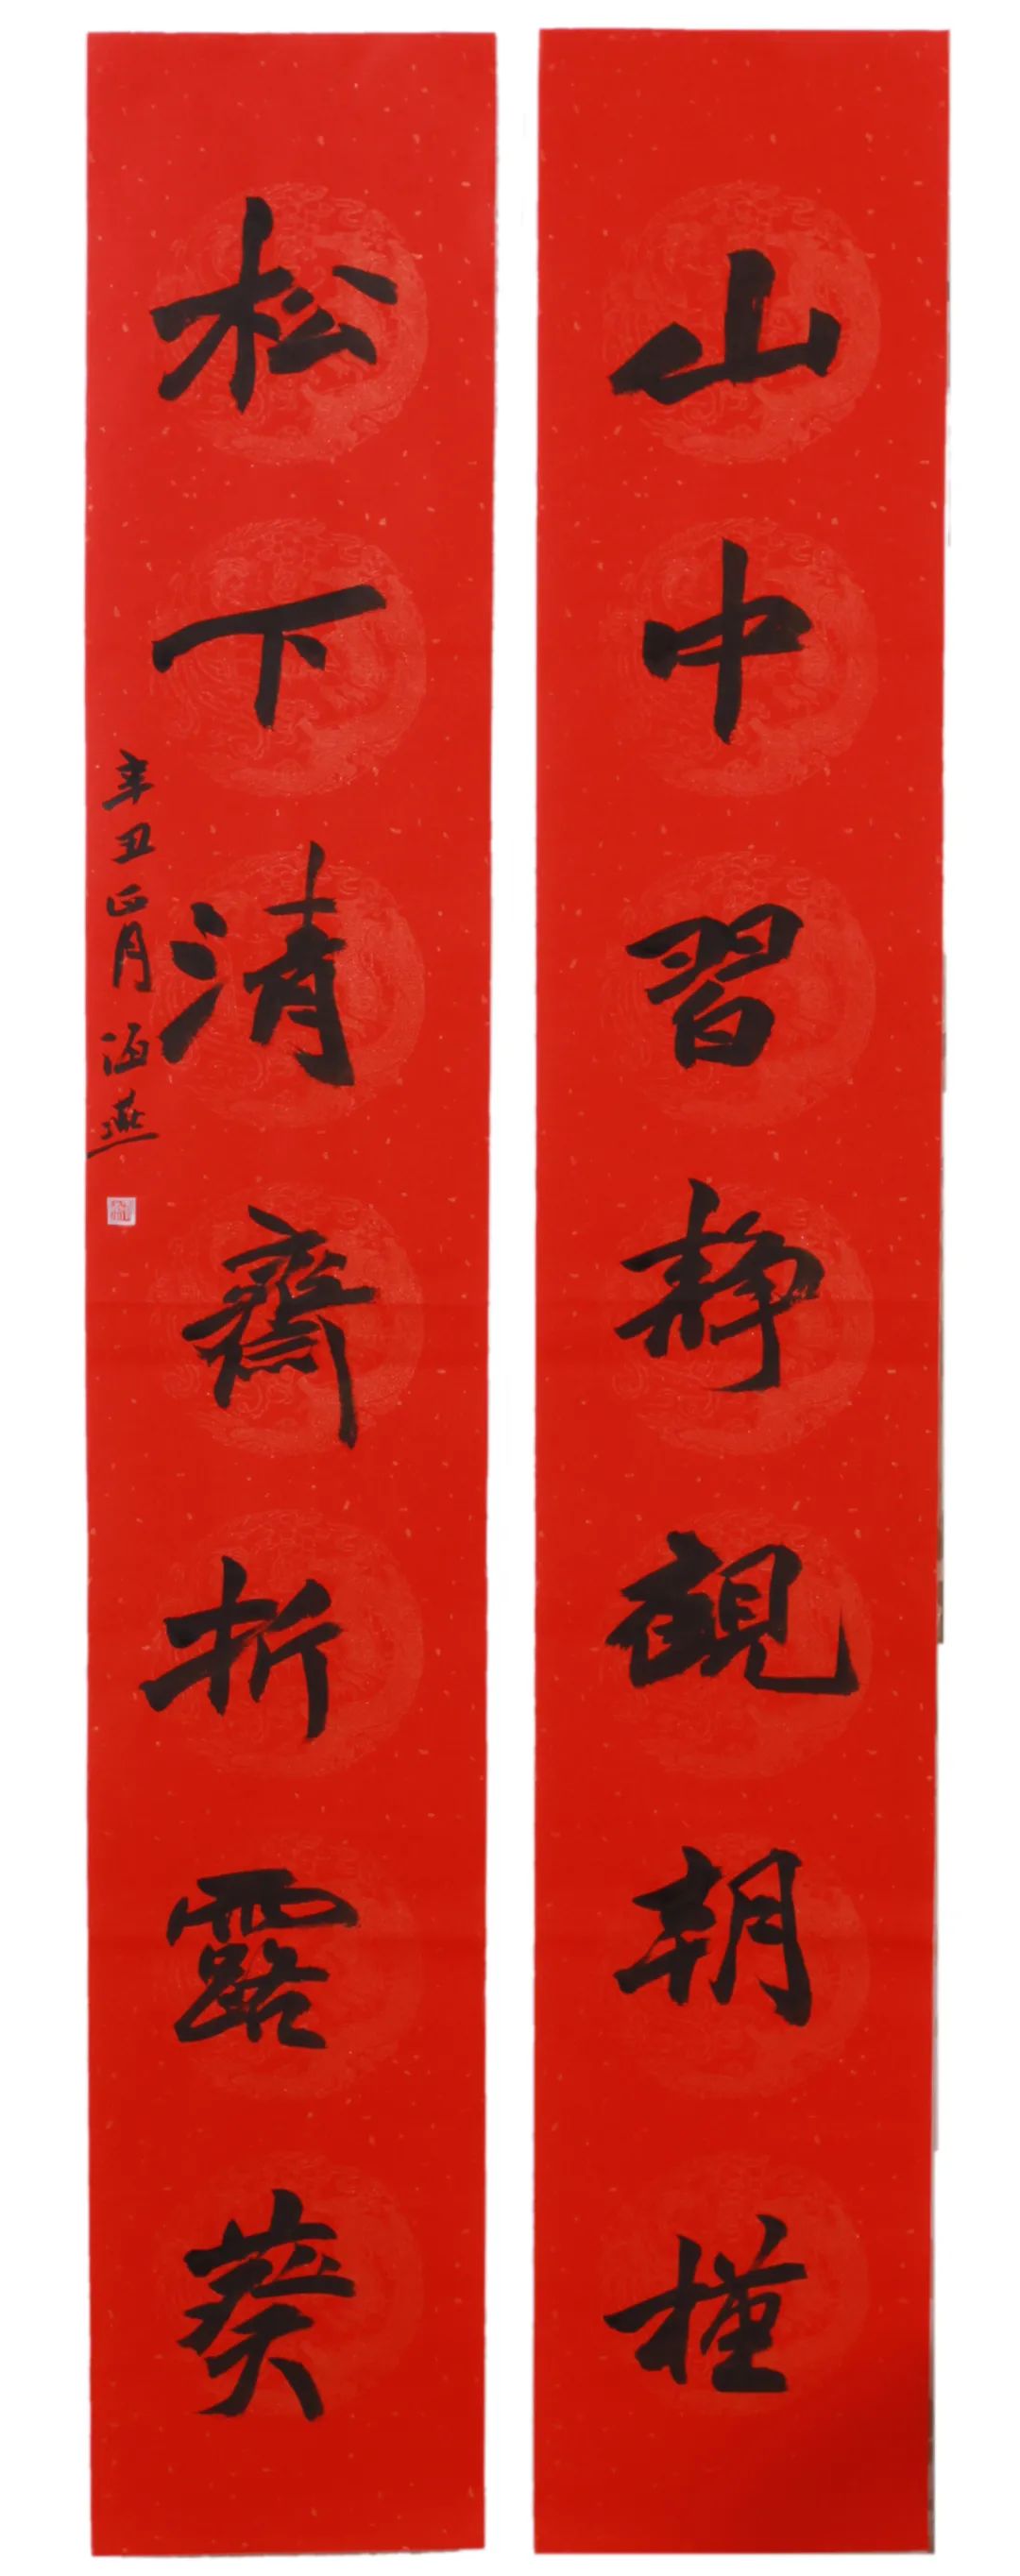 山中習静觀朝槿
松下清齋折露葵
辛丑正月涵燕